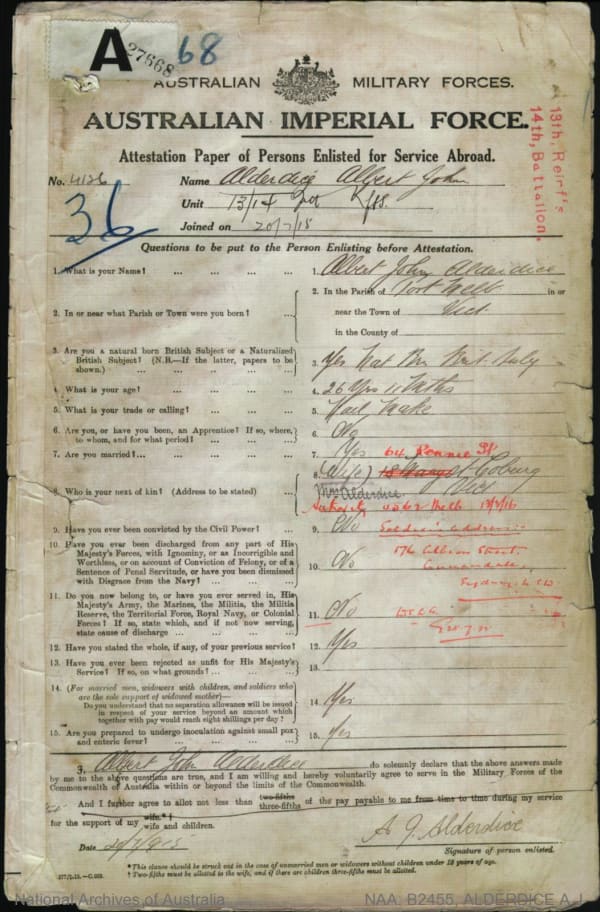 A 27668 68
AUSTRALIAN MILITARY FORCES.
AUSTRALIAN IMPERIAL FORCE.
13th, Reinf's
14th, Battalion.
Attestation Paper of Persons Enlisted for Service Abroad.
No. 4126 Name Alderdice Albert John
36 Unit 13/14
Joined on 20/7/15
Questions to be put to the Person Enlisting before Attestation.
1. What is your Name? ... ... ... 1. Albert John Alderdice
2. In or near what Parish or Town were you born? ... 2. In the Parish of Port Melb in or
near the Town of Vict
in the County of
3. Are you a natural born British Subject or a Naturalized
British Subject? (N.B.—If the latter, papers to be
shown.) ... ... ... 3. Yes Nat Brn Brit
4. What is your age? ... ... ... 4. 26 Yrs 11 Mths
5. What is your trade or calling? ... ... 5.
6. Are you, or have you been, an Apprentice? If so, where,
to whom, and for what period? ... ... 6. No
7. Are you married? ... ... ... 7. Yes 64 Rennie St
8. Who is your next of kin? (Address to be stated) ... 8. (Wife) St Coburg
Mrs Alderdice. Vict
9. Have you ever been convicted by the Civil Power? ... 9. No
10. Have you ever been discharged from any part of His
Majesty's Forces, with Ignominy, or as Incorrigible and
Worthless, or on account of Conviction of Felony, or of a
Sentence of Penal Servitude, or have you been dismissed
with Disgrace from the Navy? ... ... 10. No Street,
11. Do you now belong to, or have you ever served in, His
Majesty's Army, the Marines, the Militia, the Militia
Reserve, the Territorial Force, Royal Navy, or Colonial
Forces? If so, state which, and if not now serving,
state cause of discharge ... ... ... 11. No
12. Have you stated the whole, if any, of your previous service? 12. Yes
13. Have you ever been rejected as unfit for His Majesty's
Service? If so, on what grounds? ... ... 13.
14. (For married men, widowers with children, and soldiers who
are the sole support of widowed mother)—
Do you understand that no separation allowance will be issued
in respect of your service beyond an amount which
together with pay would reach eight shillings per day? 14. Yes
15. Are you prepared to undergo inoculation against small pox
and enteric fever? ... ... ... 15. Yes
I, Albert John Alderdice do solemnly declare that the above answers made
by me to the above questions are true, and I am willing and hereby voluntarily agree to serve in the Military Forces of the
Commonwealth of Australia within or beyond the limits of the Commonwealth.
And I further agree to allot not less than two-fifths three-fifths of the pay payable to me from time to time during my service
for the support of my wife.*† wife and children.
Date A J Alderdice
Signature of person enlisted.
* This clause should be struck out in the case of unmarried men or widowers without children under 18 years of age.
† Two-fifths must be allotted to the wife, and if there are children three-fifths must be allotted.
National Archives of Australia NAA: B2455, ALDERDICE A J